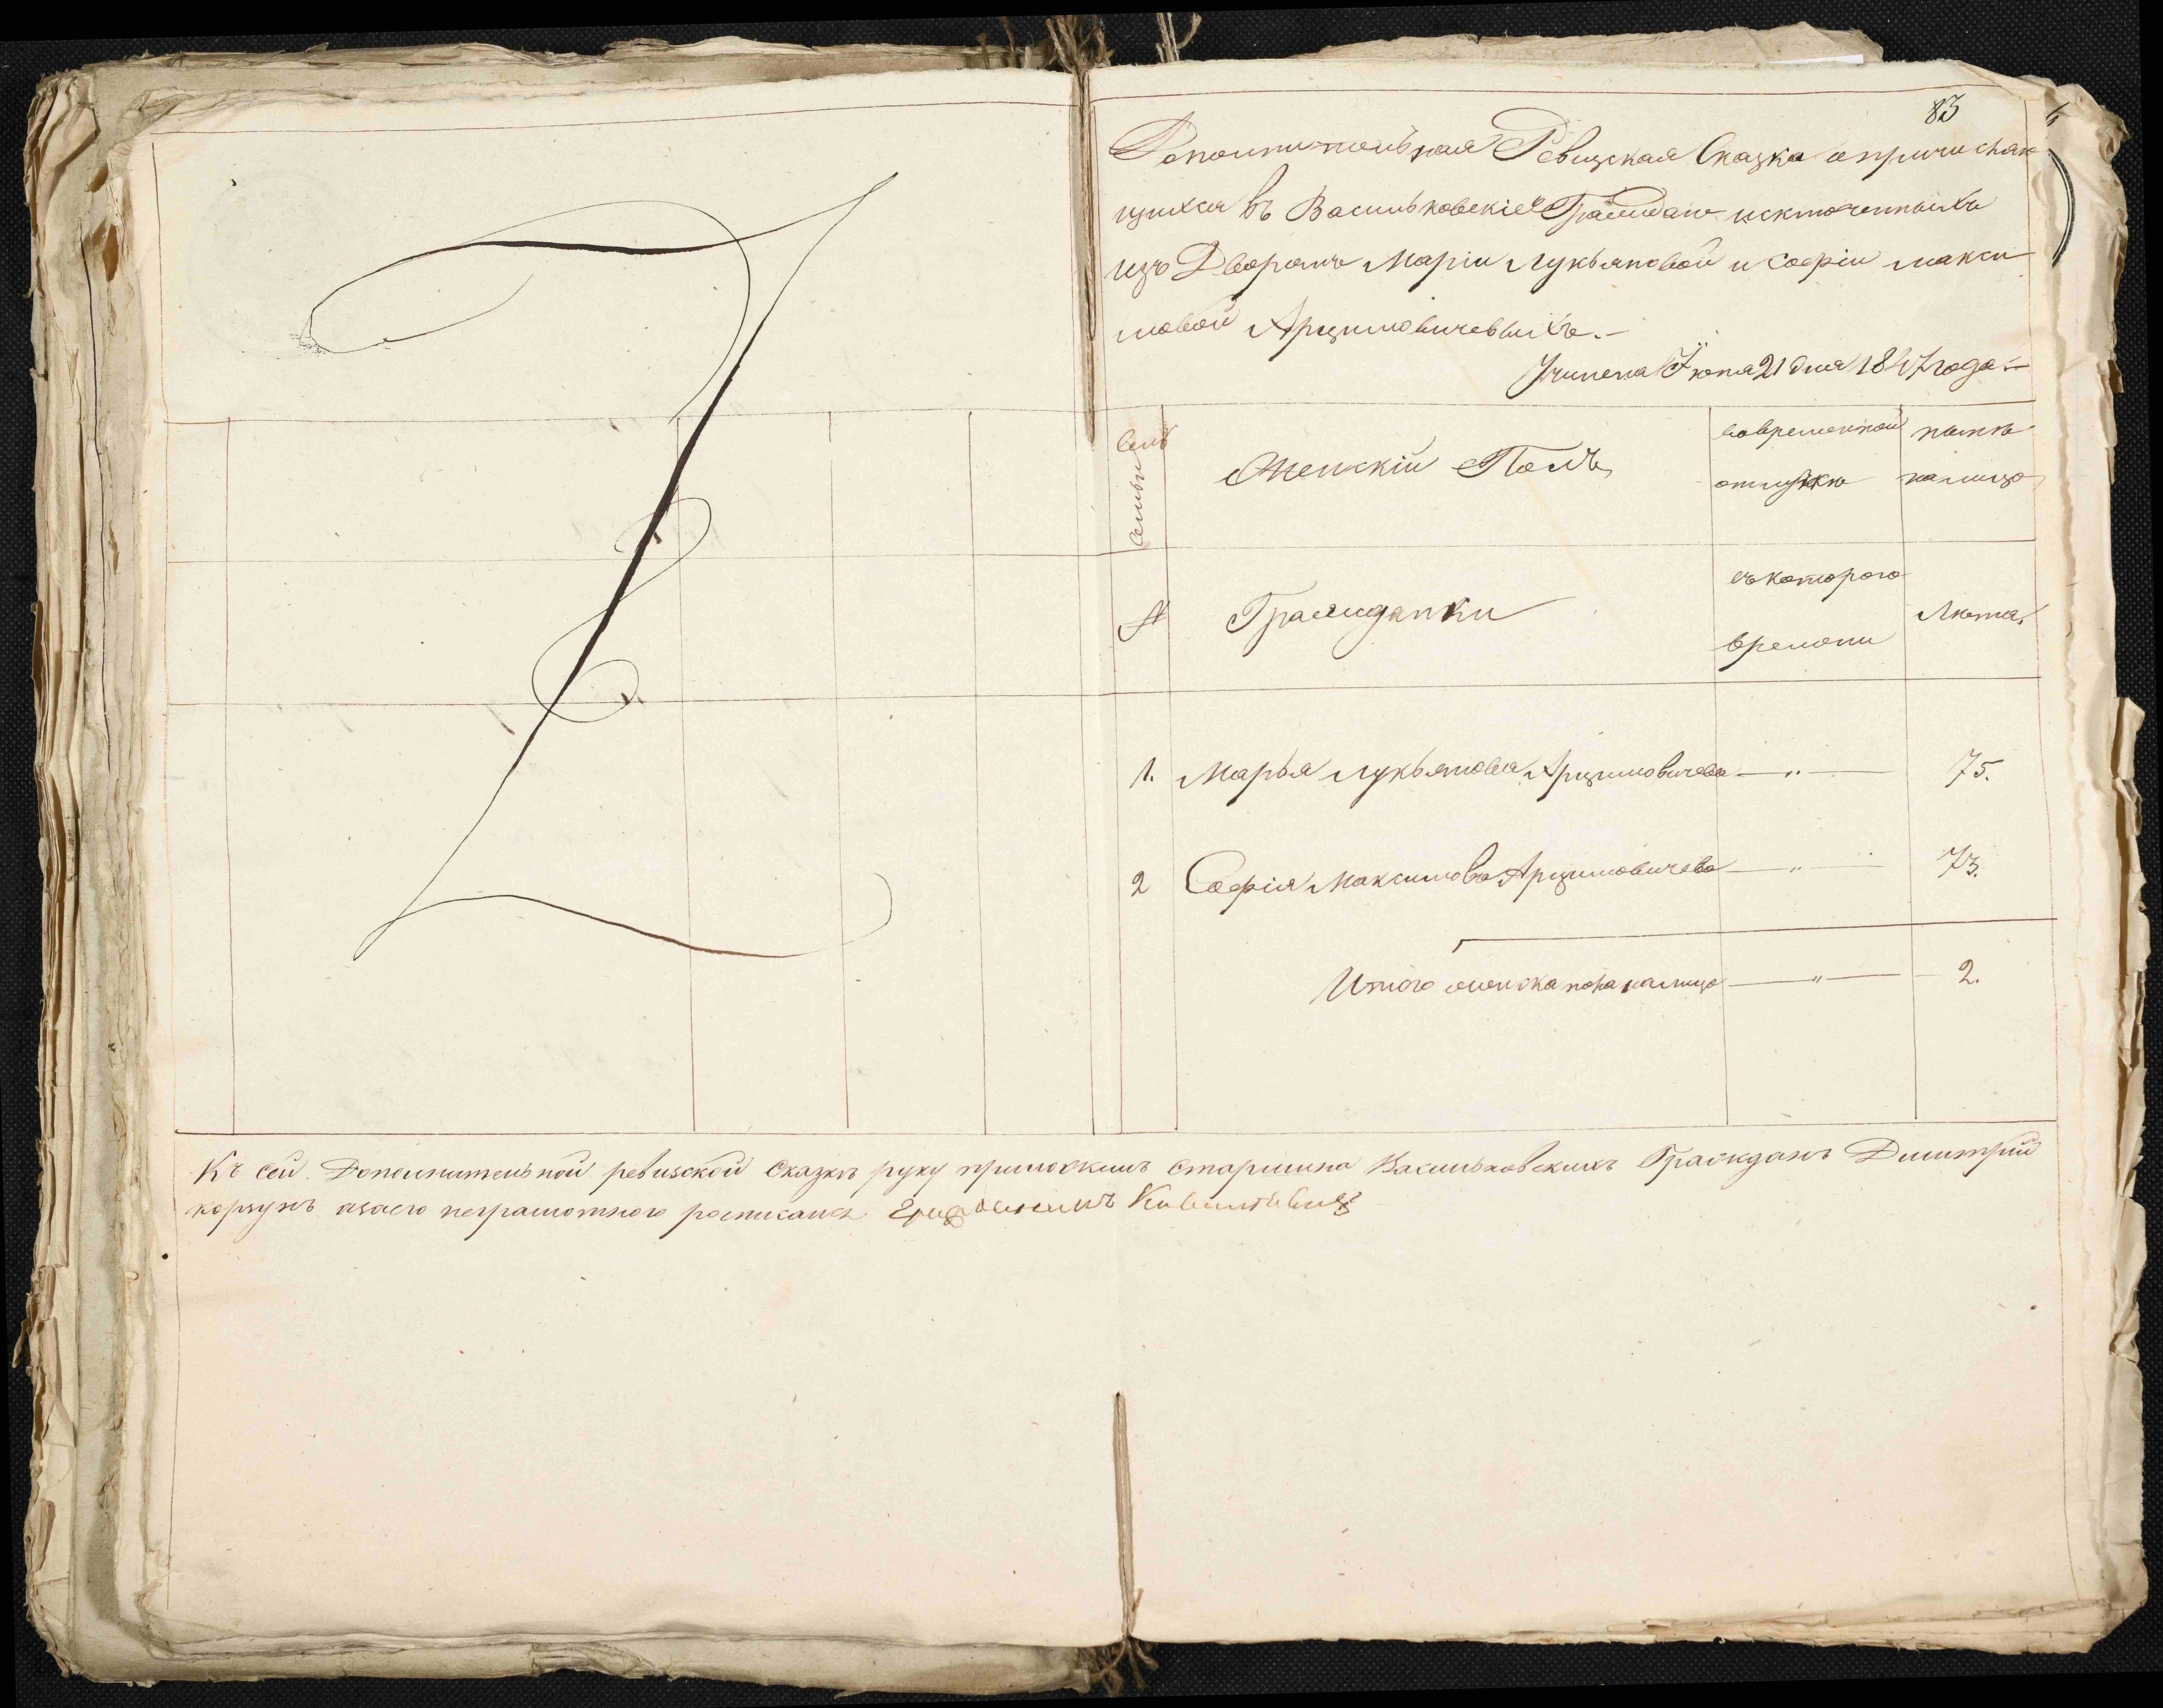 83
Дополнительная Ревизская Сказка о причисляю
щихся въ Васильковскіе Граждане исключенныхъ
изъ Дворянъ Маріи Лукьяновой и Софіи Макси
мовой Арцимовичевыхъ.—
Учинена Іюня 21 дня 1847 года.—
Семьи Женскій Полъ во временной нынѣ
отлучкѣ на лицо
съ котораго
№ Гражданки Лѣта.
времени
1. Марья Лукьянова Арцимовичева — " — 75.
2 Софія Максимова Арцимовичева — " — 73.
Итого женска пола на лицо — " — 2.
Къ сей Дополнительной ревизской Сказкѣ руку приложилъ старшина Васильковскихъ Гражданъ Дмитрій
Корзунъ а за его неграмотнаго росписался